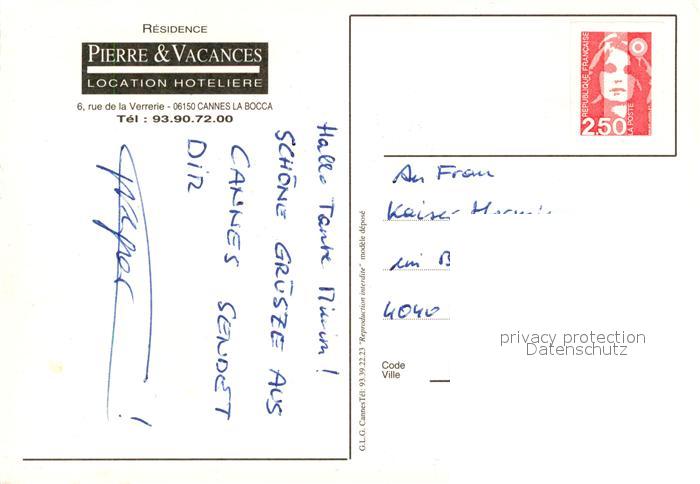 RÉSIDENCE
PIERRE & VACANCES
LOCATION HOTELIERE
6, rue de la Verrerie - 06150 CANNES LA BOCCA
Tél : 93.90.72.00
Hallo Tante Mimim!
SCHÖNE GRÜSZE AUS
CANNES SENDET
DIR
!
G.L.G. Cannes Tél: 93.39.22.23 "Reproduction interdite" modèle déposé
RÉPUBLIQUE FRANÇAISE
2,50
LA POSTE
An Frau
Kaiser
4040
privacy protection
Datenschutz
Code
Ville